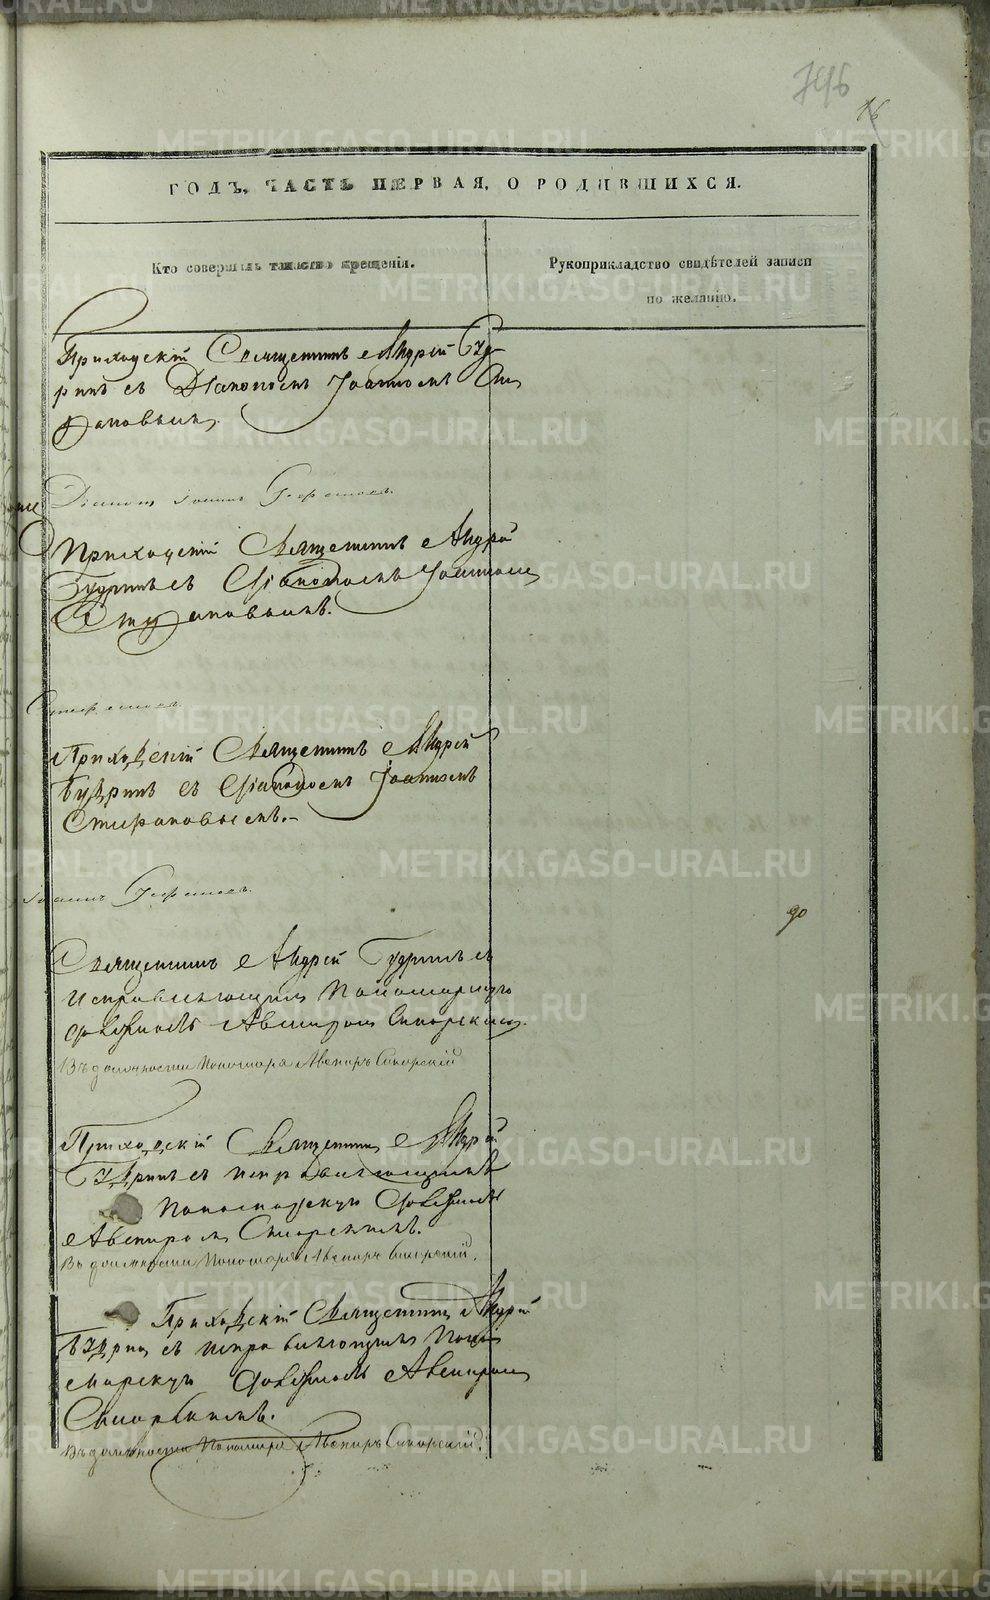 METRIKI.GASO-URAL.RU
746
16
ГОДЪ, ЧАСТЬ ПЕРВАЯ, О РОДИВШИХСЯ.
Кто совершилъ таинство крещенія.
Рукоприкладство свидѣтелей записи
по желанію.
Приходскій Священникъ Андрей Буд-
ринъ съ Діакономъ Іоанномъ
Діаконъ Іоаннъ
Приходскій Священникъ Андрей
Будринъ съ Діакономъ Іоанномъ
Приходскій Священникъ Андрей
Будринъ съ Діакономъ Іоанномъ
Іоаннъ
Священникъ Андрей Будринъ съ
исправляющимъ Пономарскую
должность Авениромъ Сиорскимъ.
Въ должности Пономаря Авениръ Сиорскій
Приходскій Священникъ Андрей
Будринъ съ исправляющимъ
Пономарскую должность
Авениромъ Сиорскимъ.
Въ должности Пономаря Авениръ Сиорскій.
Приходскій Священникъ Андрей
Будринъ съ исправляющимъ Поно-
марскую должность Авениромъ
Сиорскимъ.
Въ должности Пономаря Авениръ Сиорскій.